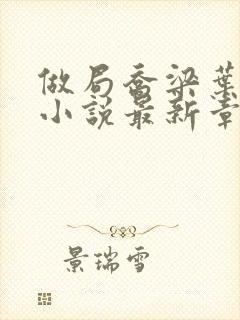 做局乔梁葉
小説最新章
景瑞雪